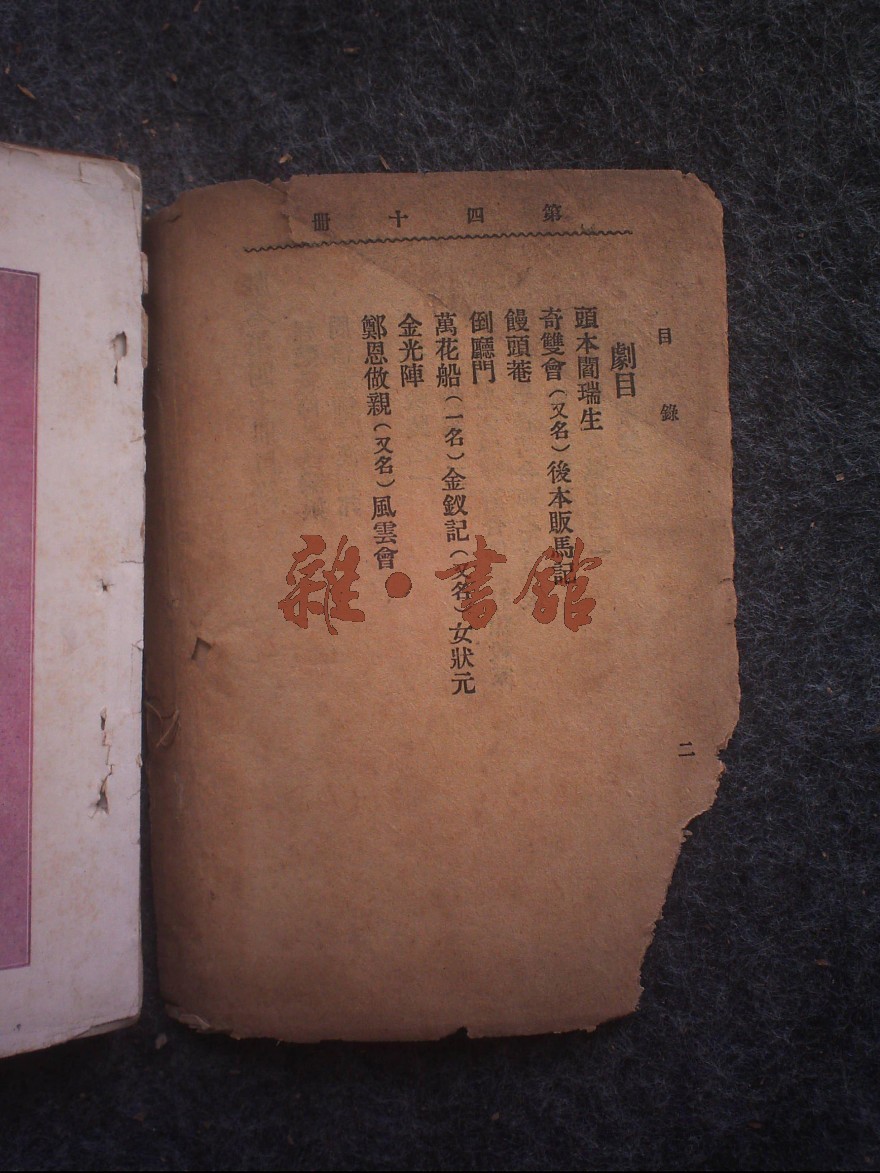 第四十冊
目錄
二
劇目
頭本閻瑞生
奇雙會（又名）後本販馬記
饅頭菴
倒廳門
萬花船（一名）金釵記（又名）女狀元
金光陣
鄭恩做親（又名）風雲會
雜・書館